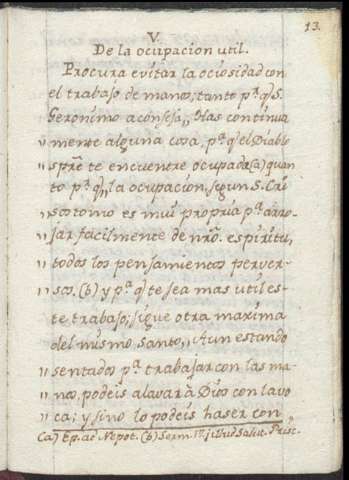 13.
V.
De la ocupacion util.
Procura evitar la ociosidad con
el trabajo de manos; tanto pª. q̃ S.
Geronimo aconseja,, Has continua
,, mente alguna cosa, pª. q̃ el Diablo
,, spr̃e te encuentre ocupada (a) quan
to pª. q̃,, la ocupacion, segun S. Cri
,, sostomo es mui propria pª. arro-
,, jar facilmente de nr̃o. espiritu,
,, todos los pensamienos perver-
,, sos, (b) y pª. q̃ te sea mas util es-
te trabajo; sigue otra maxima
del mismo Santo,, Aun estando
,, sentados pª. trabajar con las ma-
,, nos, podeis alavar à Dios con la vo
,, ca; y si no lo podeis haser con ,,
(a) Ep. ad Nepot. (b) Serm. in illud Salut. Prisc.